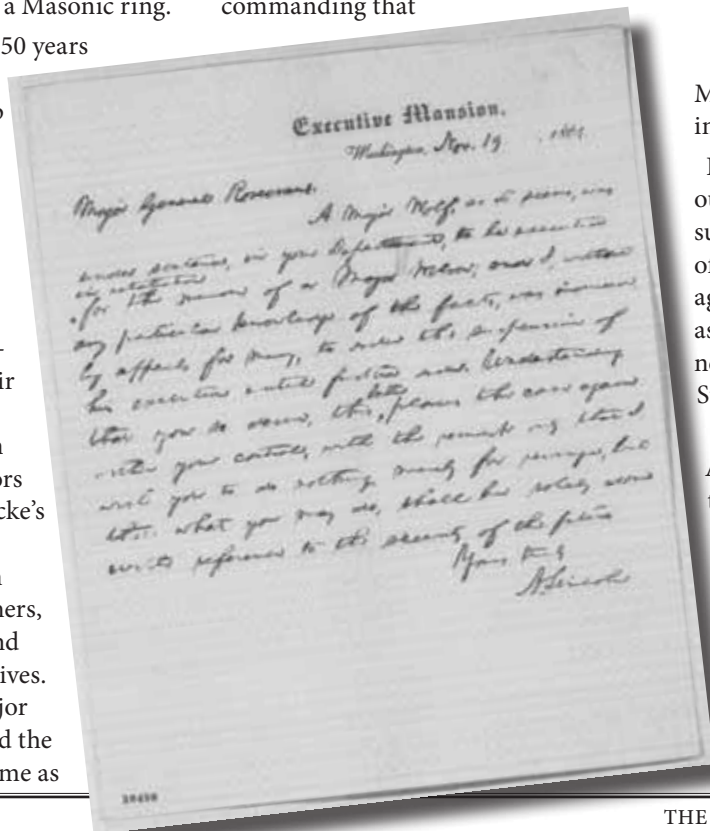 a Masonic ring.
50 years
ir
ors
cke's
ners,
nd
ives.
jor
d the
me as
commanding that
Executive Mansion,
Washington, Nov. 19, 186
Major General Rosecrans.
A Major Wolf, as it seems, was
under sentence, in your Department, to be executed
in retaliation
for the murder of a Major Wilson; and I, without
any particular knowledge of the facts, was induced
by appeals for mercy, to order the suspension of
his execution until further order. Understanding
that you so desire, this letter places the case again
within your control, with the remark only that I
wish you to do nothing merely for revenge, but
that what you may do, shall be solely done
with reference to the security of the future
Yours truly
A. Lincoln
M
in
ou
su
of
ag
as
S
THE